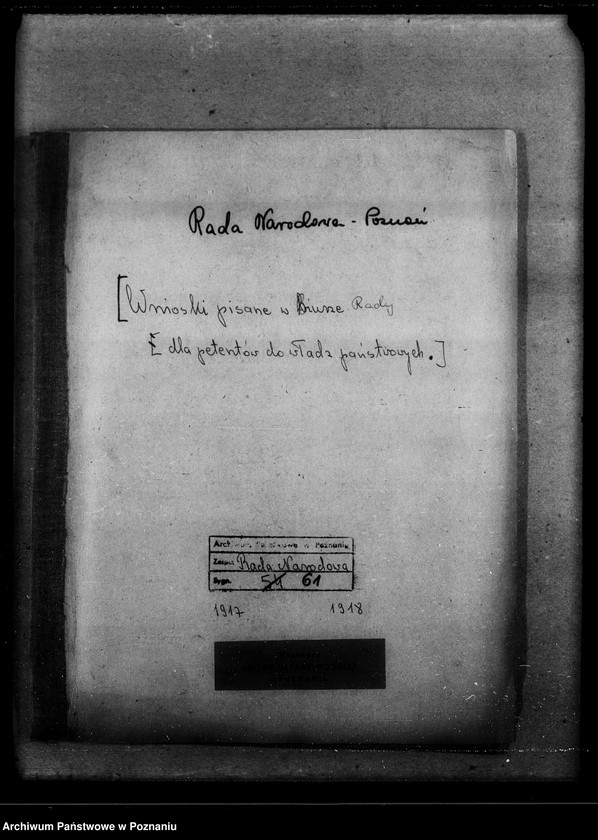 Rada Narodowa - Poznań
[Wnioski pisane w Biurze Rady
dla petentów do władz państwowych.]
Archiwum Państwowe w Poznaniu
Zespół Rada Narodowa
Sygn. 54 61
1917 1918
Archiwum Państwowe w Poznaniu